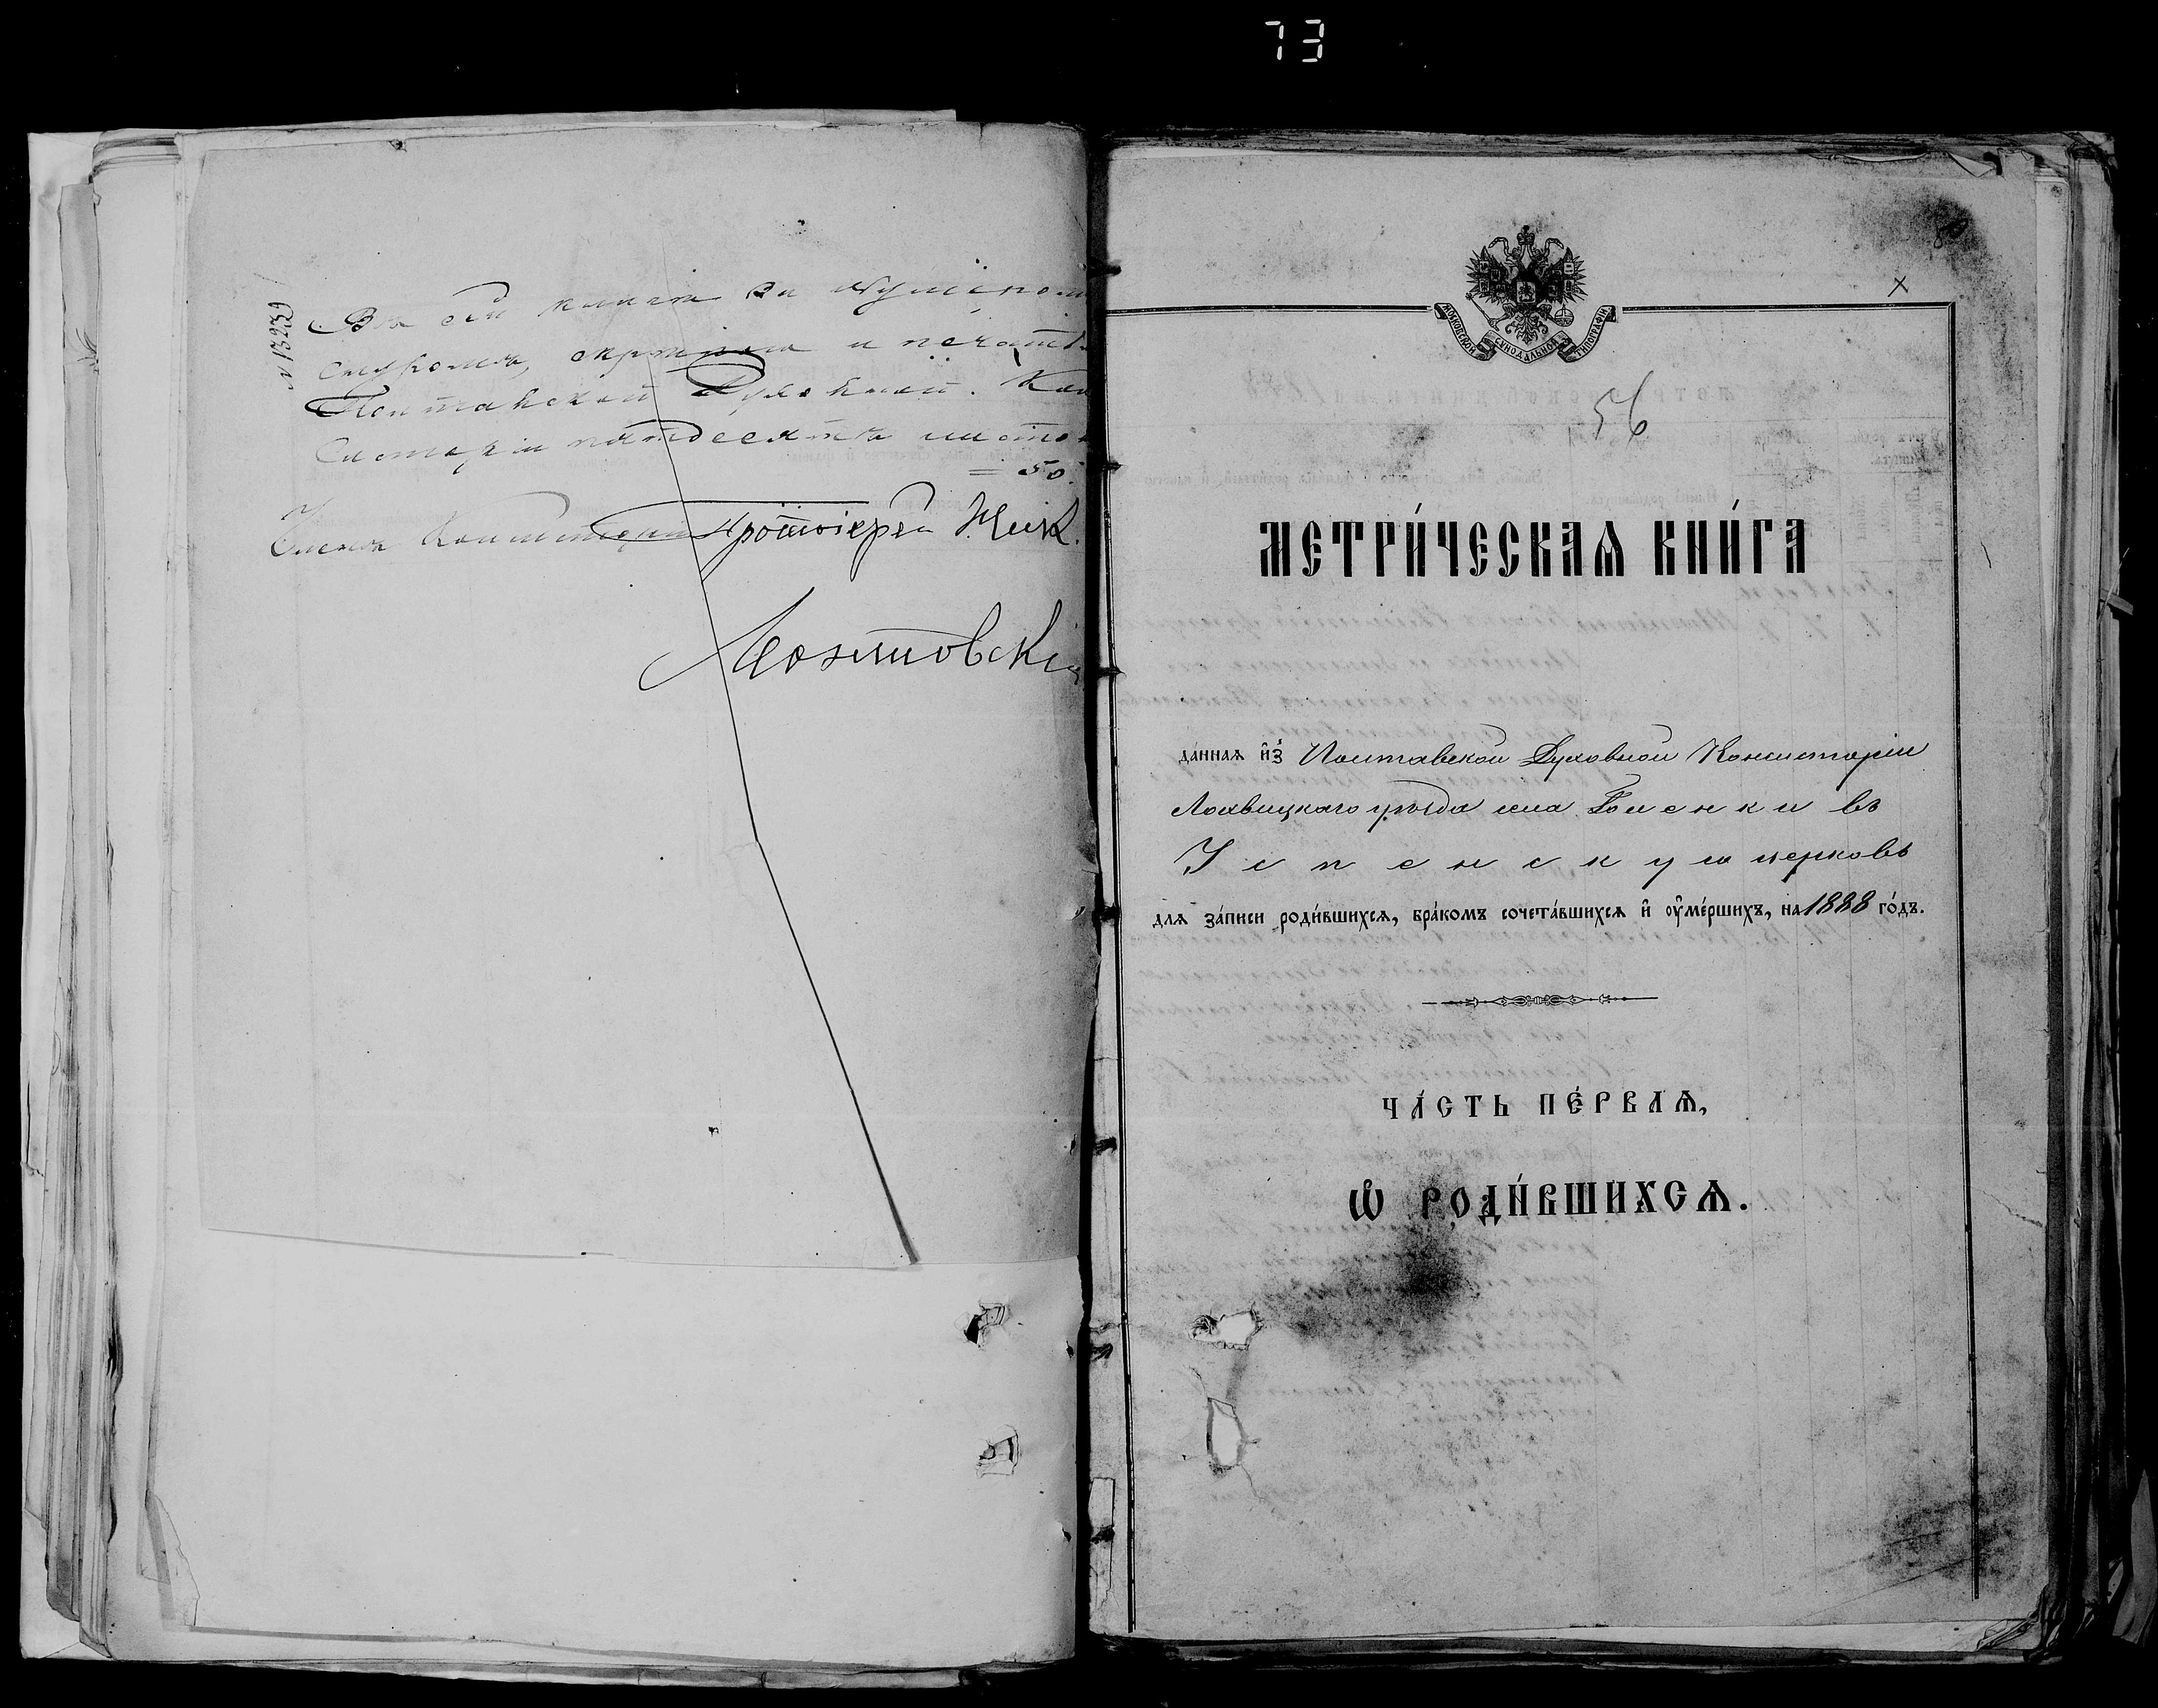 73
№ 13239
Въ сей книгѣ за шнуромъ
скрѣпою и печатью
Полтавской Духовной Кон
систоріи пятдесятъ листовъ
= 50.
Членъ Консисторіи Протоіерей Ник.
80
×
МОСКОВСКОЙ СѴНОДАЛЬНОЙ ТИПОГРАФІИ
56
МЕТРИ́ЧЕСКАѦ КНИ́ГА
да́ннаѧ и҆з̾ Полтавской Духовной Консисторіи
Лохвицкаго уѣзда села Бѣсѣдки въ
Успенскую церковь
для за́писи роди́вшихсѧ, бра́комъ сочета́вшихсѧ и҆ оу҆ме́ршихъ, на 1888 го́дъ.
ЧА́СТЬ ПЕ́РВАѦ,
Ѽ РОДИ́ВШИХСѦ.